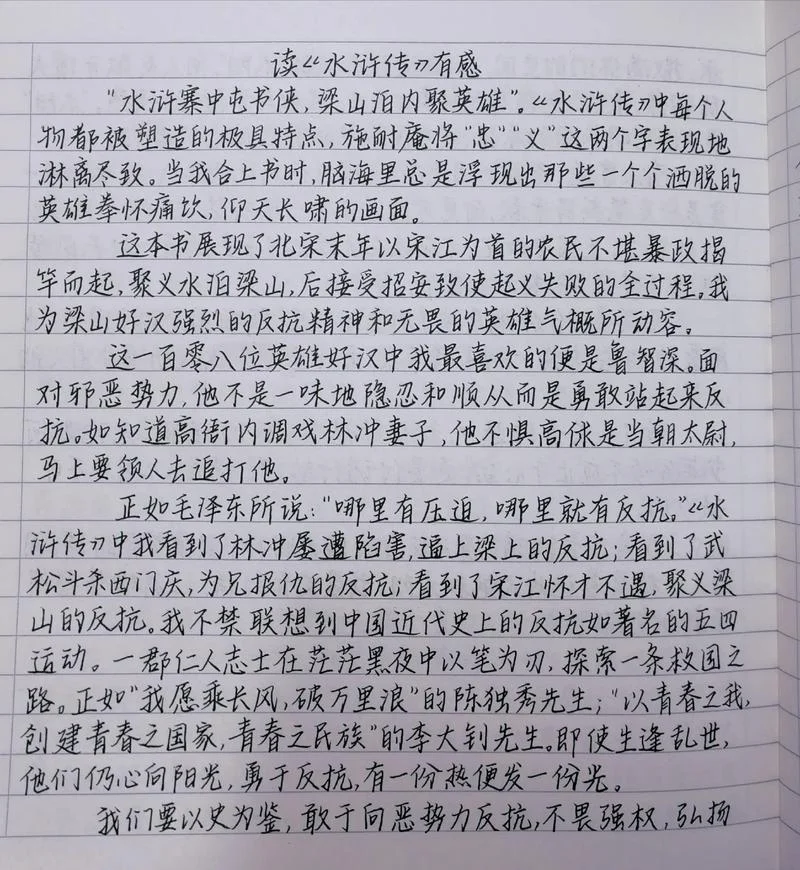 读《水浒传》有感
"水浒寨中屯书侠，梁山泊内聚英雄"。《水浒传》中每个人
物都被塑造的极具特点，施耐庵将"忠""义"这两个字表现地
淋离尽致。当我合上书时，脑海里总是浮现出那些一个个洒脱的
英雄举怀痛饮，仰天长啸的画面。
这本书展现了北宋末年以宋江为首的农民不堪暴政揭
竿而起，聚义水泊梁山，后接受招安致使起义失败的全过程。我
为梁山好汉强烈的反抗精神和无畏的英雄气概所动容。
这一百零八位英雄好汉中我最喜欢的便是鲁智深。面
对邪恶势力，他不是一味地隐忍和顺从而是勇敢站起来反
抗。如知道高衙内调戏林冲妻子，他不惧高俅是当朝太尉，
马上要领人去追打他。
正如毛泽东所说："哪里有压迫，哪里就有反抗。"《水
浒传》中我看到了林冲屡遭陷害，逼上梁上的反抗；看到了武
松斗杀西门庆，为兄报仇的反抗；看到了宋江怀才不遇，聚义梁
山的反抗。我不禁联想到中国近代史上的反抗如著名的五四
运动。一群仁人志士在茫茫黑夜中以笔为刃，探索一条救国之
路。正如"我愿乘长风，破万里浪"的陈独秀先生；"以青春之我，
创建青春之国家，青春之民族"的李大钊先生。即使生逢乱世，
他们仍心向阳光，勇于反抗，有一份热便发一份光。
我们要以史为鉴，敢于向恶势力反抗，不畏强权，弘扬